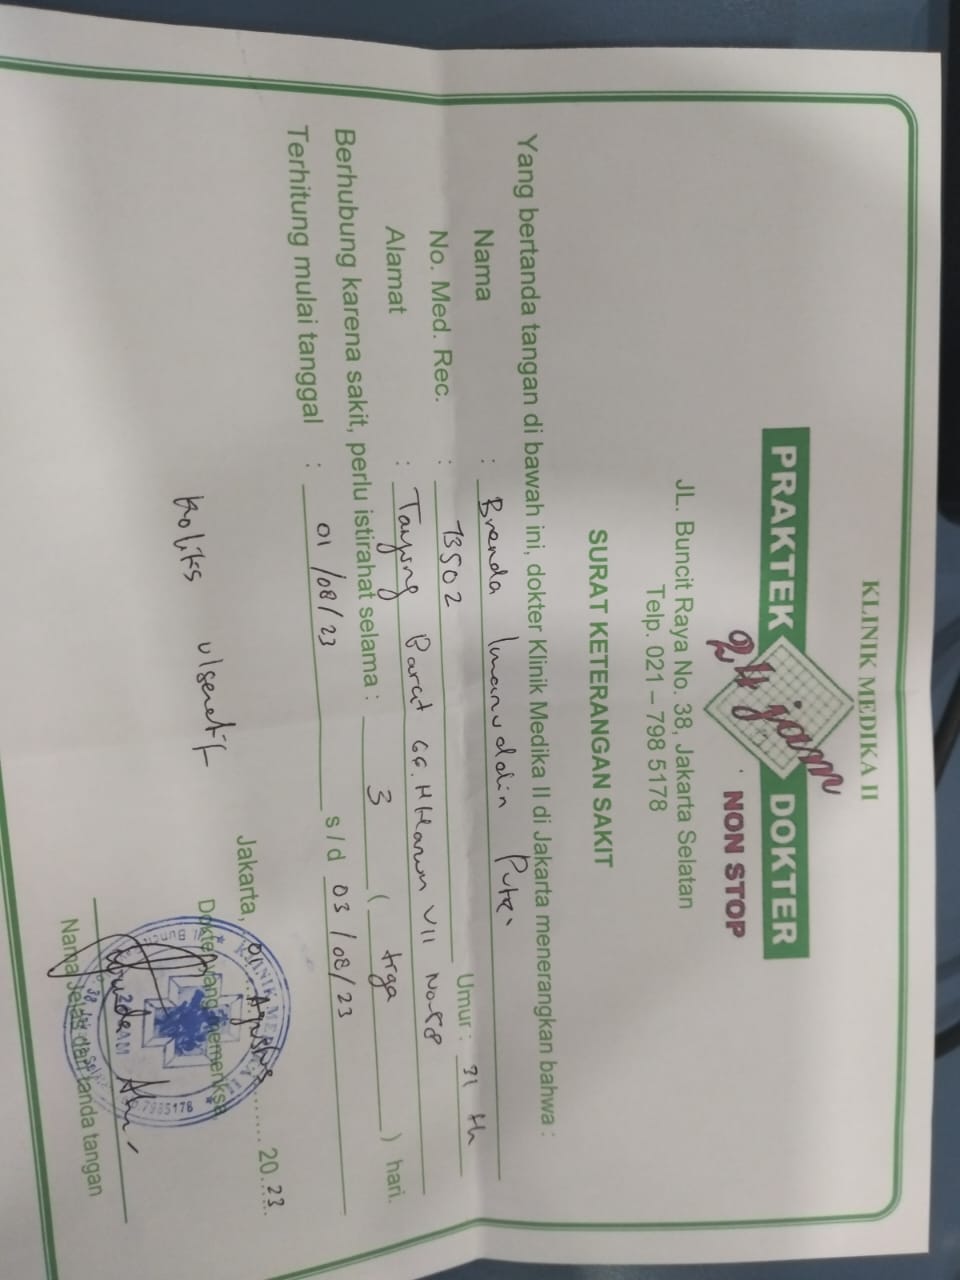 KLINIK MEDIKA II
PRAKTEK 24 jam DOKTER
NON STOP
JL. Buncit Raya No. 38, Jakarta Selatan
Telp. 021 – 798 5178
SURAT KETERANGAN SAKIT
Yang bertanda tangan di bawah ini, dokter Klinik Medika II di Jakarta menerangkan bahwa :
Nama : Brenda Imanuddin Putra
No. Med. Rec. : 73502 Umur : 31 th
Alamat : Tanjung Barat Gg. H Harun VII No 58
Berhubung karena sakit, perlu istirahat selama : 3 ( tiga ) hari.
Terhitung mulai tanggal : 01/08/23 s/d 03/08/23
Kolitis ulseratif
Jakarta, 01 Agustus 2023
Dokter yang memeriksa
Nama Jelas dan tanda tangan